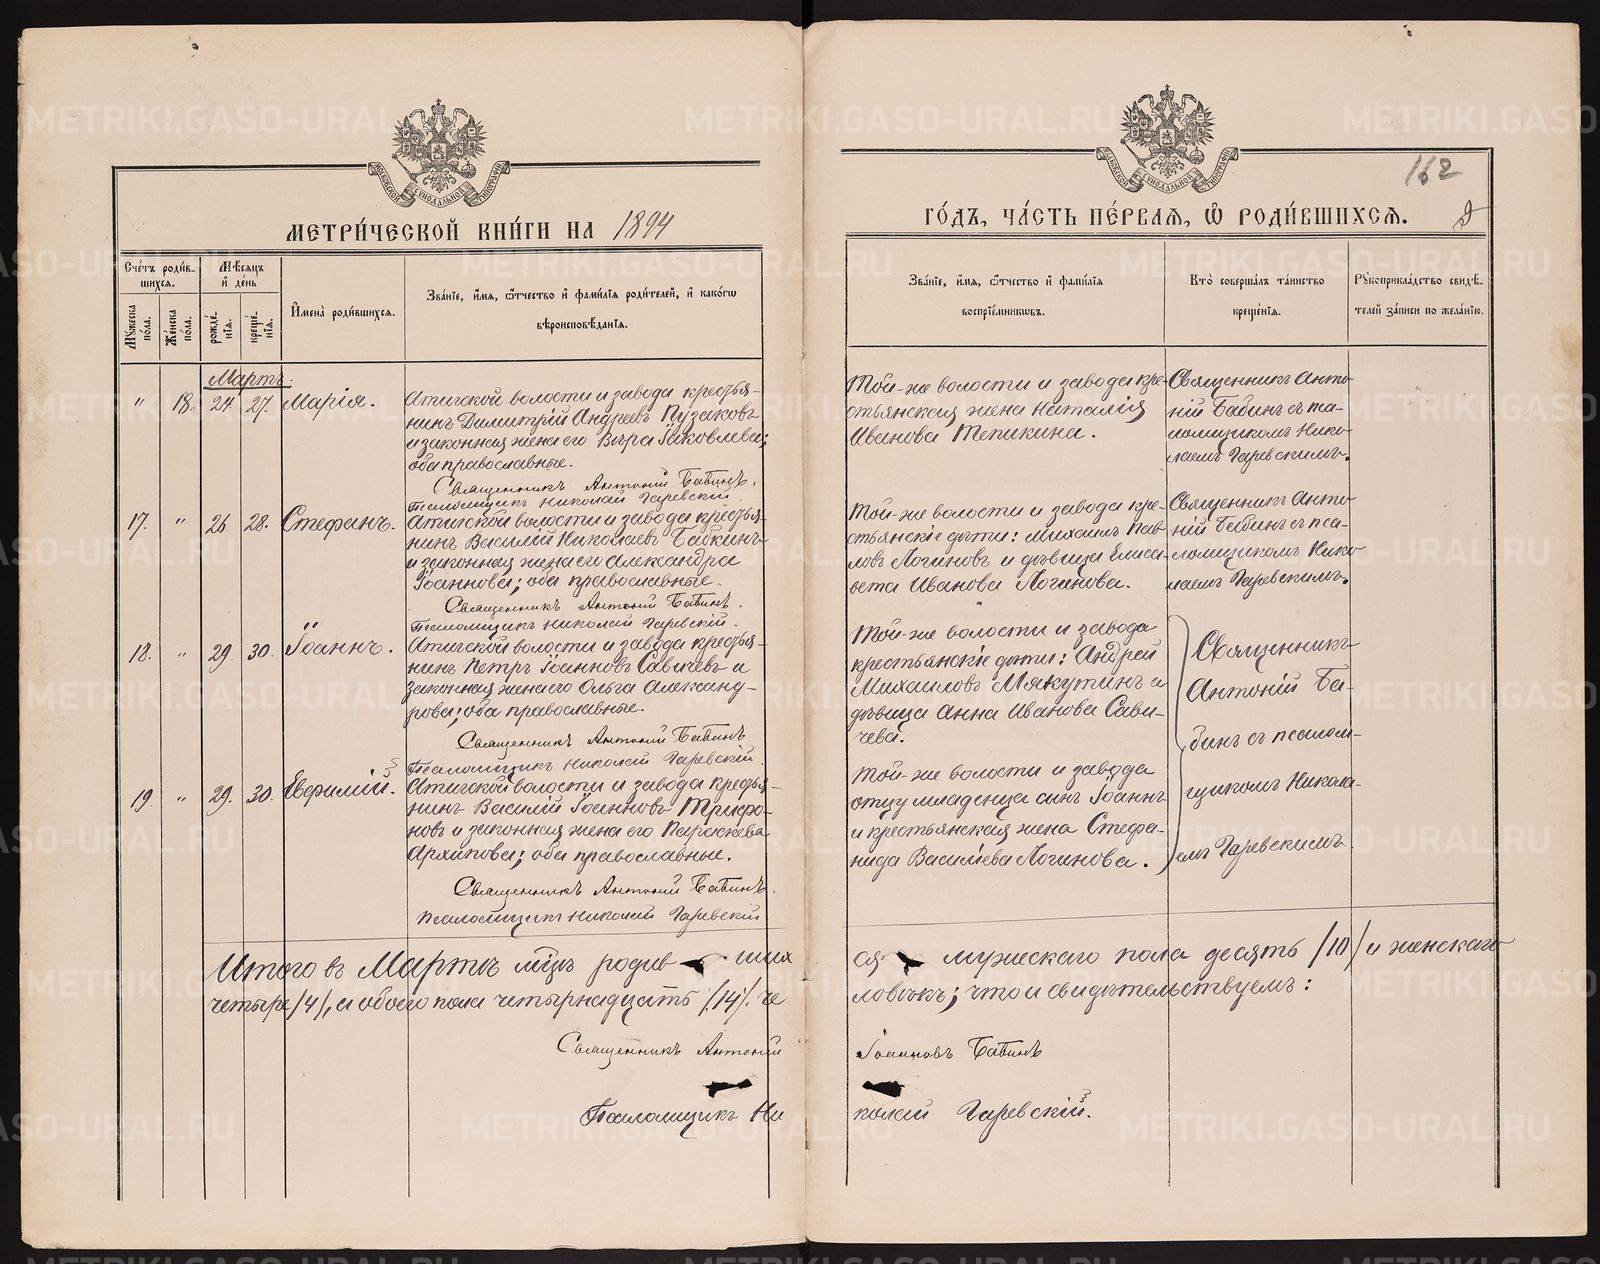 162
МЕТРИ́ЧЕСКОЙ КНИ́ГИ НА 1894
ГО́ДЪ, ЧА́СТЬ ПЕ́РВАЯ, Ѽ РОДИ́ВШИХСЯ.
Сче́тъ роди́в-
шихся.
Мѣ́сяцъ
и҆ де́нь
Мꙋ́жеска
по́ла.
Же́нска
по́ла.
рожде́-
нїѧ.
креще́-
нїѧ.
И҆мена̀ роди́вшихся.
Зва́нїе, и҆́мя, ѻ҆́тчество и҆ фами́лїя роди́телей, и҆ како́гѡ
вѣроисповѣ́данїя.
Зва́нїе, и҆́мя, ѻ҆́тчество и҆ фами́лїя
воспрїе́мникѡвъ.
Кто̀ соверша́лъ та́инство
креще́нїя.
Рꙋкоприкла́дство свидѣ́-
телей за́писи по жела́нїю.
Мартъ.
" 18. 24 27. Марія.
Атигской волости и завода крестья-
нинъ Димитрій Андреевъ Пузаковъ
и законная жена его Вѣра Іаковлева;
оба православные.
Священникъ Антоній Бабинъ.
Псаломщикъ Николай Гаревскій.
Той-же волости и завода кре-
стьянская жена Наталія
Иванова Тепикина.
Священникъ Анто-
ній Бабинъ съ пса-
ломщикомъ Нико-
лаемъ Гаревскимъ.
17. " 26 28. Стефанъ.
Атигской волости и завода крестья-
нинъ Василій Николаевъ Бабкинъ
и законная жена его Александра
Іоаннова; оба православные.
Священникъ Антоній Бабинъ.
Псаломщикъ Николай Гаревскій.
Той-же волости и завода кре-
стьянскіе дѣти: Михаилъ Пав-
ловъ Логиновъ и дѣвица Елиса-
вета Иванова Логинова.
Священникъ Анто-
ній Бабинъ съ пса-
ломщикомъ Нико-
лаемъ Гаревскимъ.
18. " 29. 30. Іоаннъ.
Атигской волости и завода крестья-
нинъ Петръ Іоанновъ Савичевъ и
законная жена его Ольга Александ-
рова; оба православные.
Священникъ Антоній Бабинъ
Псаломщикъ Николай Гаревскій.
Той-же волости и завода
крестьянскіе дѣти: Андрей
Михаиловъ Мякутинъ и
дѣвица Анна Иванова Сави-
чева.
Священникъ
Антоній Ба-
бинъ съ псалом-
щикомъ Никола-
емъ Гаревскимъ
19 " 29. 30. Евфимій.
Атигской волости и завода крестья-
нинъ Василій Іоанновъ Трифо-
новъ и законная жена его Параскева
Архипова; оба православные.
Священникъ Антоній Бабинъ.
Псаломщикъ Николай Гаревскій
Той-же волости и завода
отцу младенца сынъ Іоаннъ
и крестьянская жена Стефа-
нида Василіева Логинова.
Итого въ Мартѣ мѣцѣ родив-шихся мужескаго пола десять /10/ и женскаго
четыре /4/, а обоего пола четырнадцать /14/. человѣкъ; что и свидѣтельствуемъ:
Священникъ Антоній Іоанновъ Бабинъ
Псаломщикъ Николай Гаревскій.
METRIKI.GASO-URAL.RU